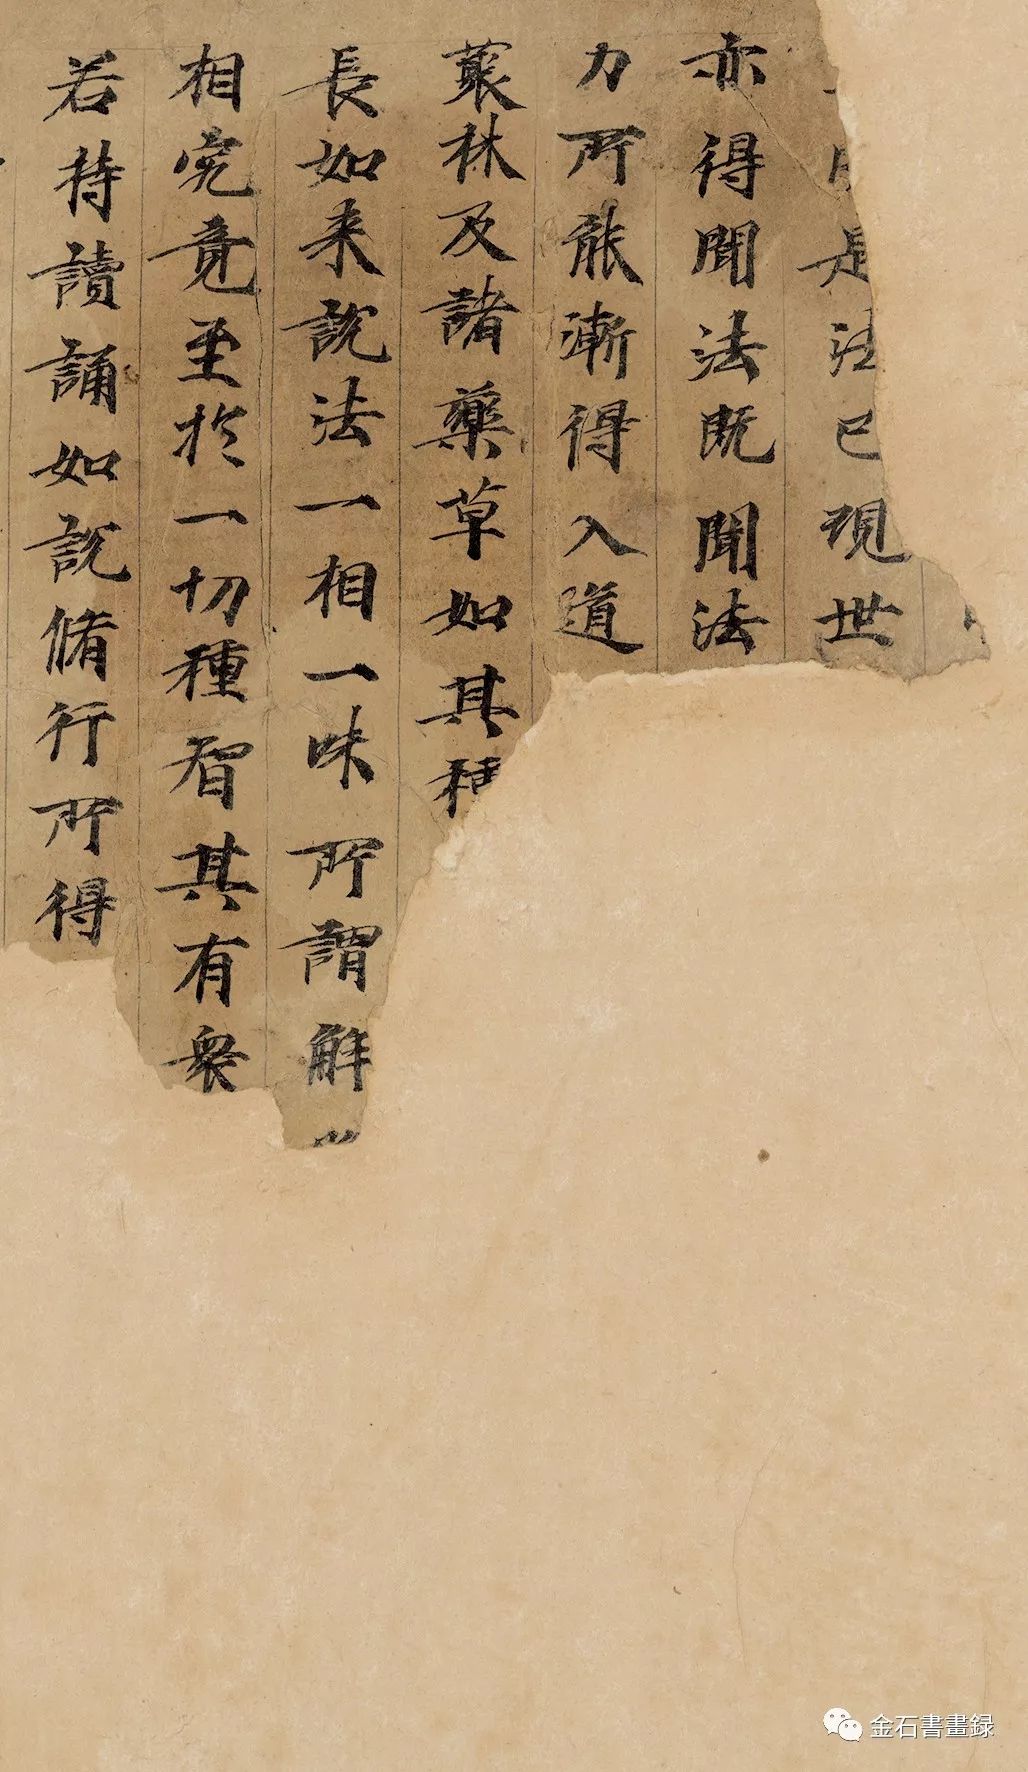 是法已現世
亦得聞法既聞法
力所能漸得入道
藂林及諸藥草如其種
長如来説法一相一味所謂解
相究竟至於一切種智其有衆
若持讀誦如説脩行所得
金石書畫録